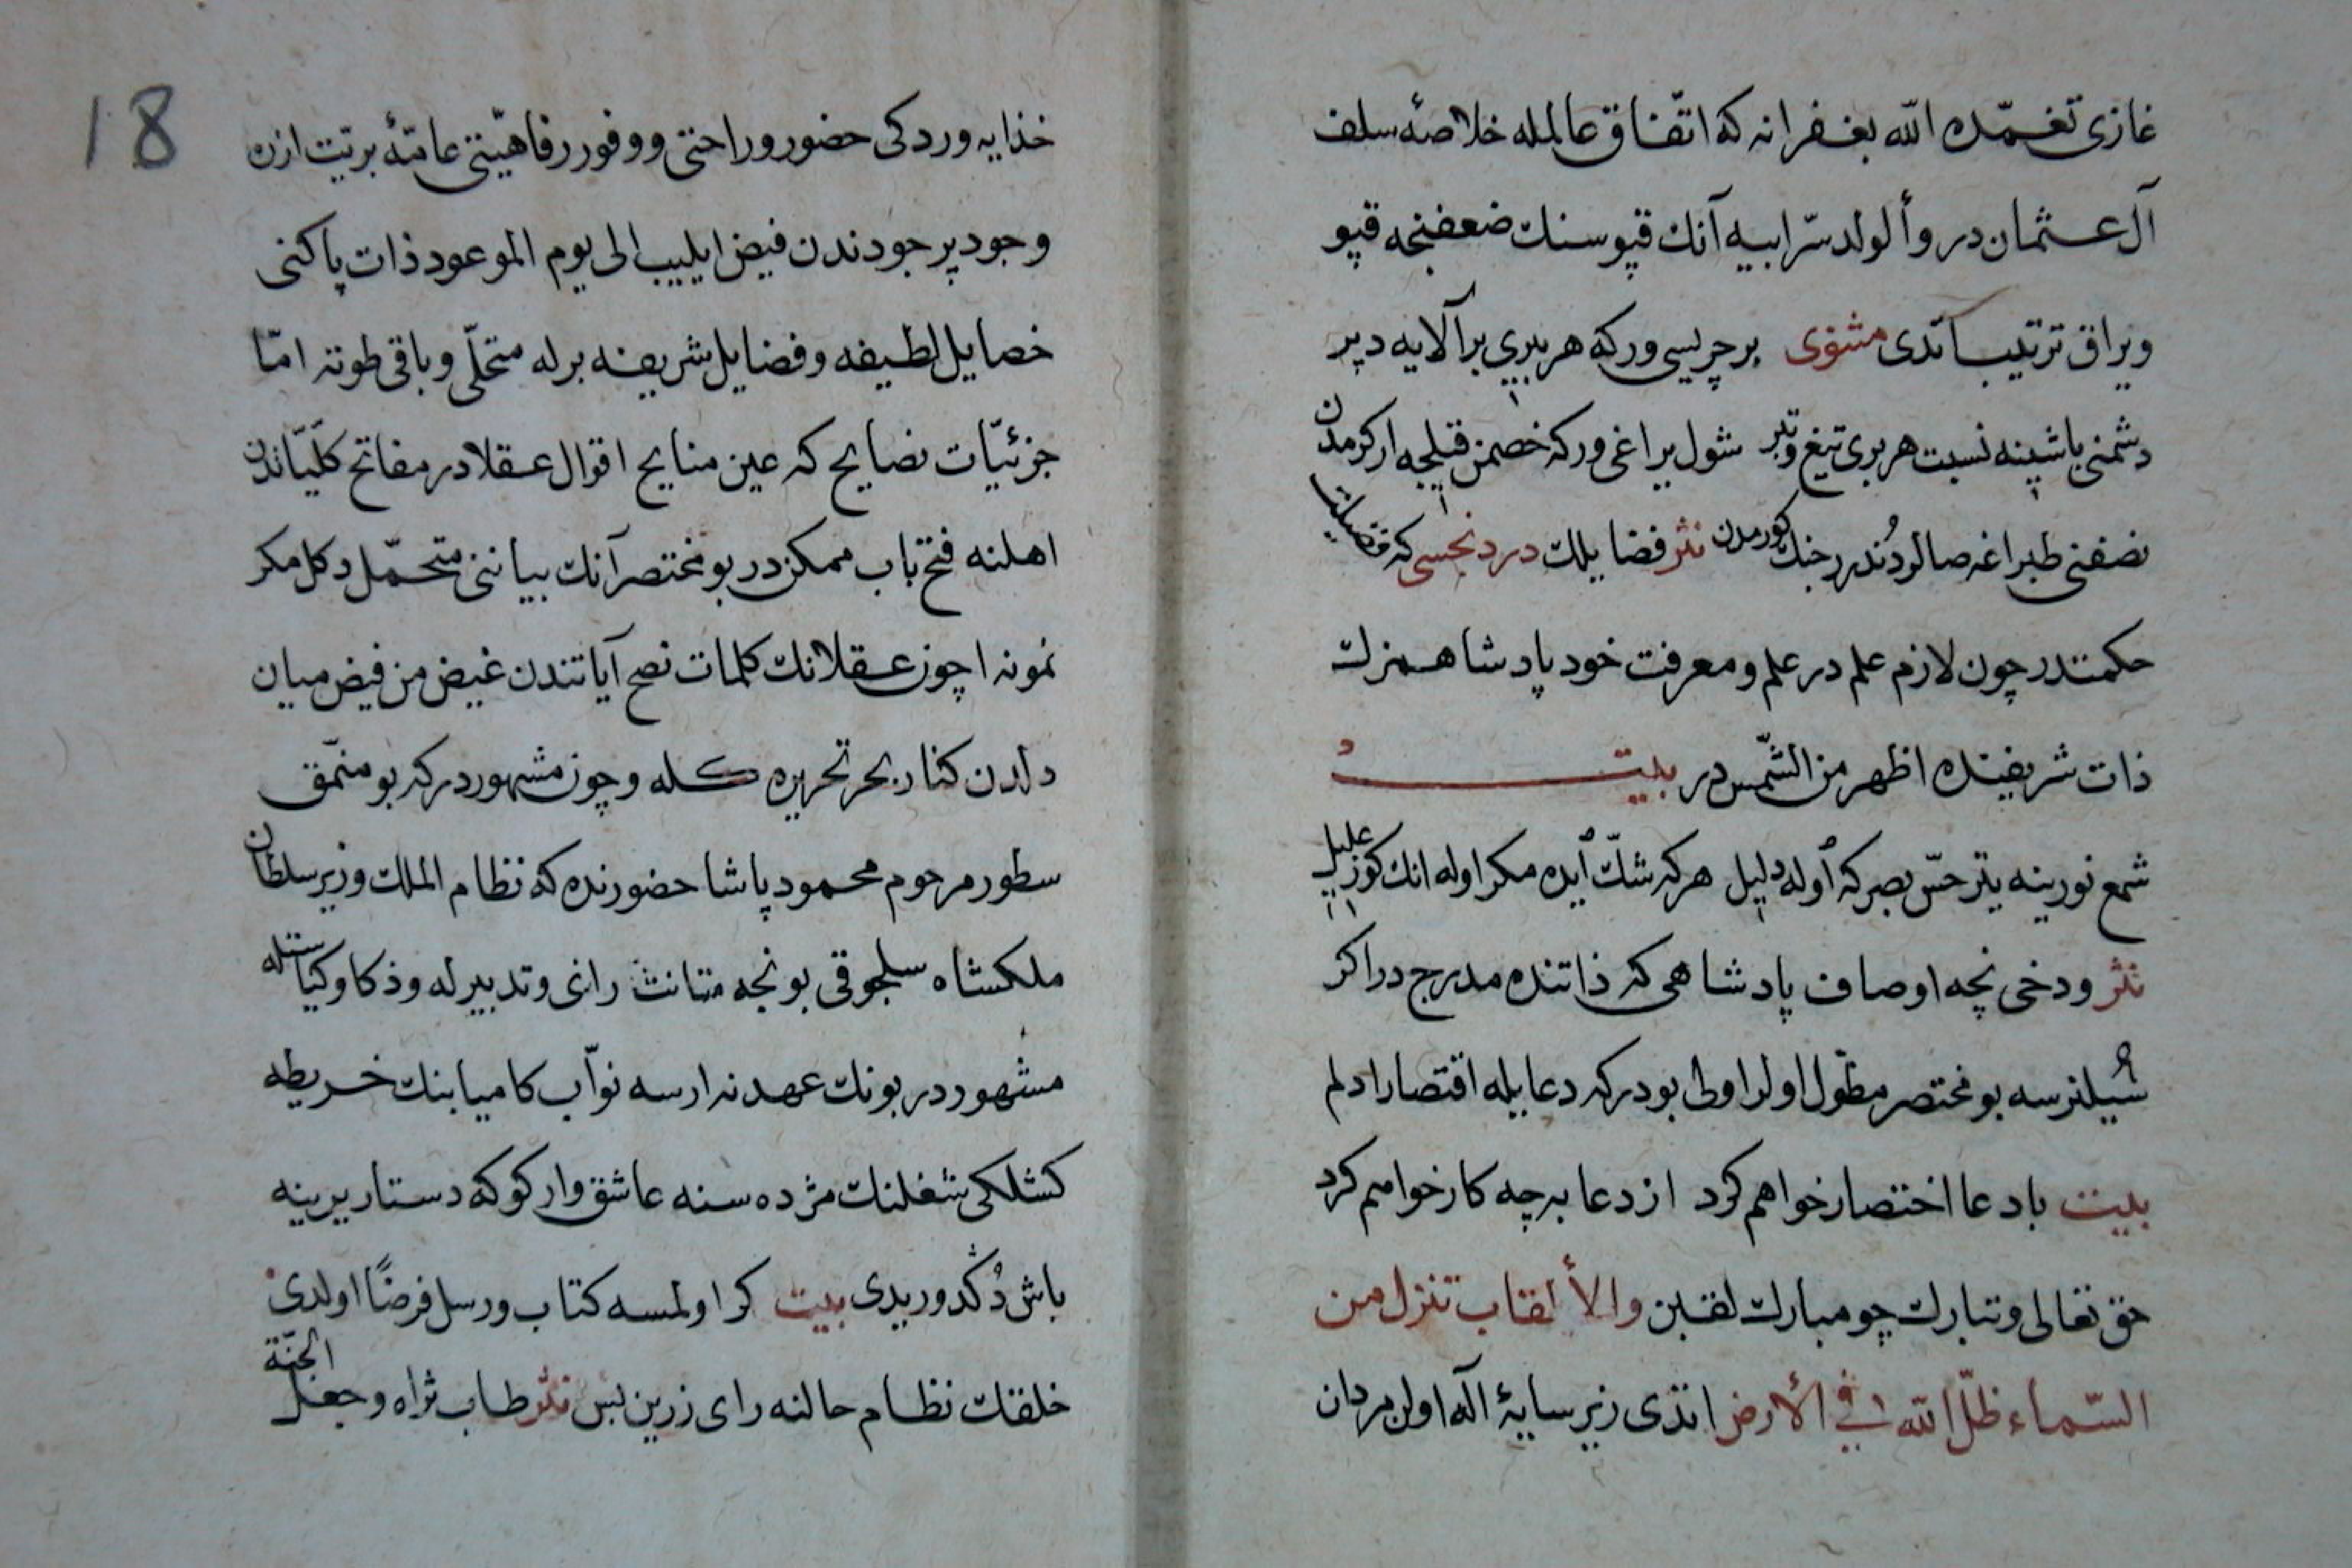 غازی تغمّده الله بغفرانه که اتّفاق عالمله خلاصهٔ سلف
آل عثمان در وألولد سرّ ابیه آنك قپوسنك ضعفنجه قپو
ویراق ترتیب اتدی مثنوی بر چریسی ور که هر بیری بر آلایه دیر
دشمنی باشینه نسبت هر بری تیغ وتبر شول یراغی ور که خصمن قیلیجه ار کرمدن
نصفنی طپراغه صالر دندر رجنك کورمدن نثر فضایلك دردنجسی که فضیلت
حکمتدر چون لازم علم در علم ومعرفت خود پادشاهمزك
ذات شریفنده اظهر من الشّمس در بیت
شمع نورینه یتر حسّ بصر که أوله دلیل هر که شكّ أیده مکر اوله انك کوزی علیل
نثر ودخی نچه اوصاف پادشاهی که ذاتنده مدرج در اکر
سُیلنرسه بو مختصر مطوّل اولر اولی بودر که دعا بیله اقتصار ادلم
بیت بادعا اختصار خواهم کرد از دعا به چه کار خواهم کرد
حق تعالی وتبارك چو مبارك لقبن والألقاب تنزل من
السّماء ظلّ الله فی الأرض اندی زیر سایهٔ اله اولن مردان
18
خذایه وردکی حضور وراحتی ووفور رفاهیّتی عامّهٔ بریّت ازره
وجود پر جودندن فیض ایلییب الی یوم الموعود ذات پاکنی
خصایل لطیفه وفضایل شریفه برله متحلّی وباقی طوته امّا
جزئیّات نصایح که عین منایح اقوال عقلادر مفاتح کلّیّاتدن
اهلنه فتح باب ممکن در بو مختصر آنك بیاننی متحمّل دکل مکر
نمونه اچون عقلانك کلمات نصح آیاتندن غیض من فیض میان
دلدن کنار بحر تحریره کله وچون مشهوردر که بو منمّق
سطور مرحوم محمود پاشا حضورنده که نظام الملك وزیر سلطان
ملکشاه سلجوقی بونجه متانت رای وتدبیرله وذکا وکیاستله
مشهور در بونك عهدنه ارسه نوّاب کامیابنك خریطه
کشلکی شغلنك مژده سنه عاشق وار کوکه دستار یرینه
باش دُکدوریدی بیت کر اولمسه کتاب ورسل فرضًا اولدی
خلقك نظام حالنه رای زرین بس نثر طاب ثراه وجعل الجنّة